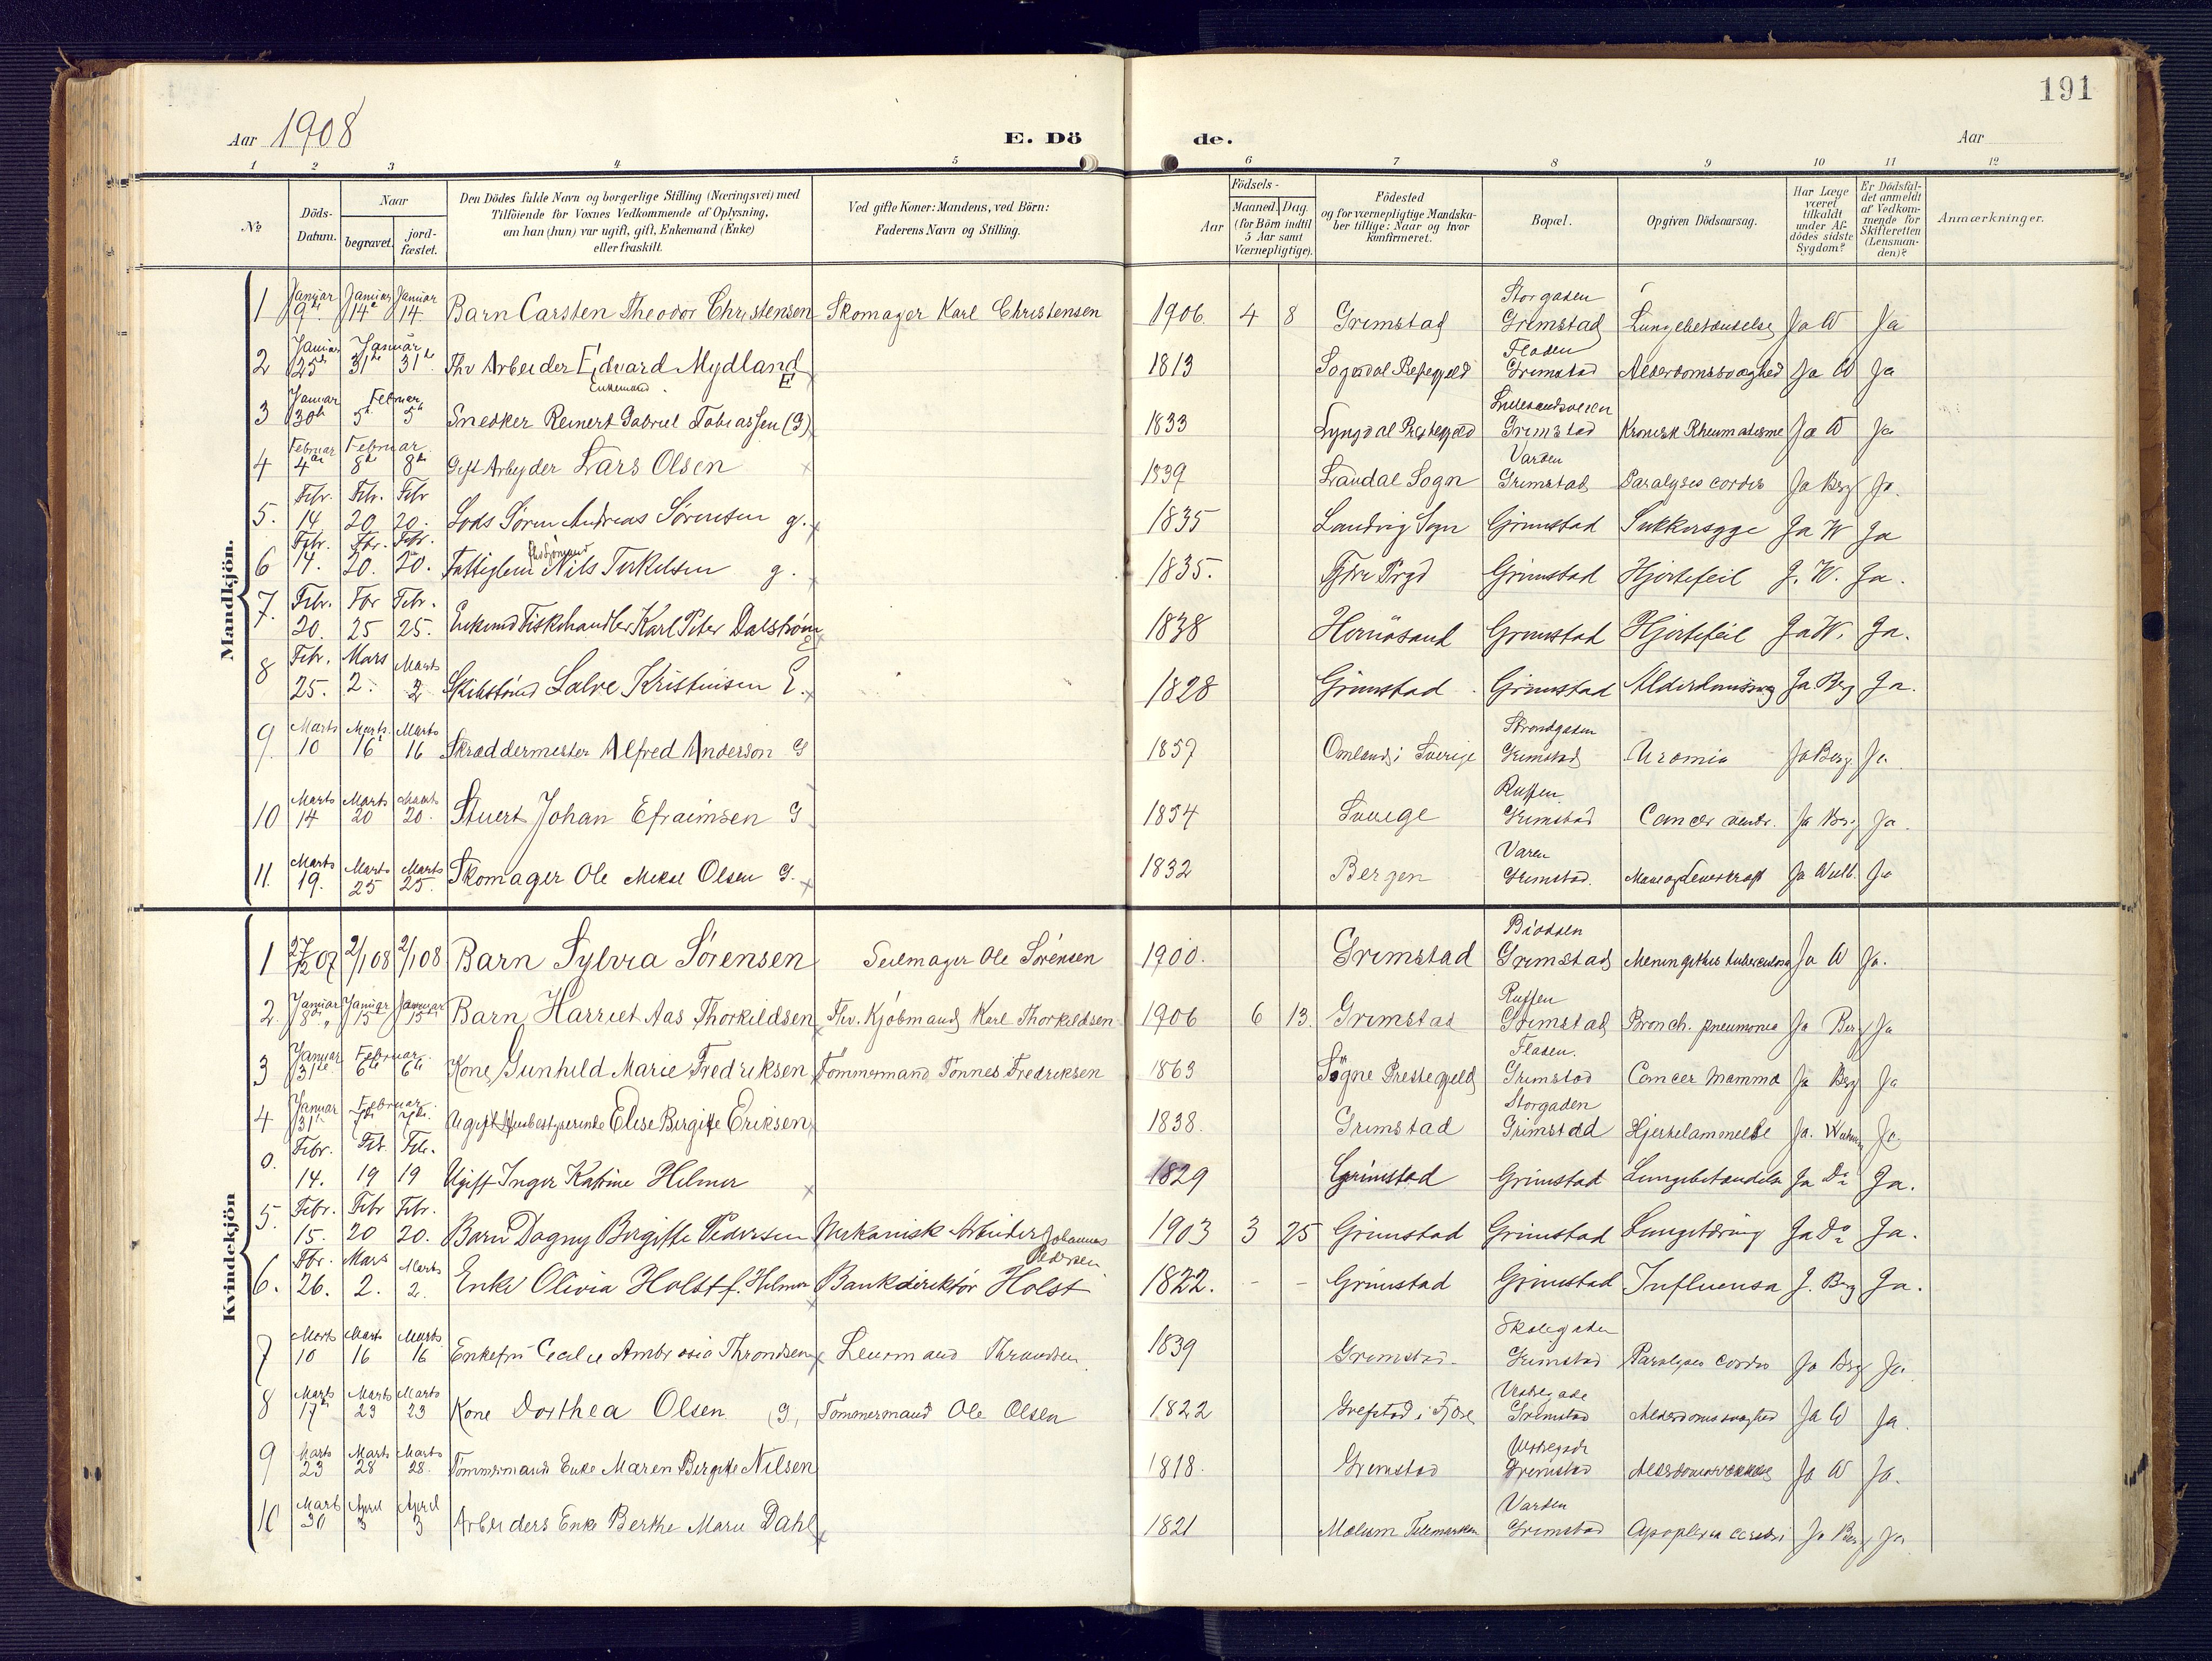 191
Aar 1908
E. Dö
de.
Aar
1 2 3 4 5 6 7 8 9 10 11 12
№
Döds-
Datum.
Naar
begravet.
jord-
fæstet.
Den Dödes fulde Navn og borgerlige Stilling (Næringsvei) med
Tilföiende for Voxnes Vedkommende af Oplysning,
om han (hun) var ugift, gift, Enkemand (Enke)
eller fraskilt.
Ved gifte Koner: Mandens, ved Börn:
Faderens Navn og Stilling.
Födsels-
Aar
Maaned. Dag.
(for Börn indtil
5 Aar samt
Værnepligtige).
Födested
og for værnepligtige Mandska-
ber tillige: Naar og hvor
konfirmeret.
Bopæl.
Opgiven Dödsaarsag.
Har Læge
været
tilkaldt
under Af-
dödes sidste
Sygdom?
Er Dödsfal-
det anmeldt
af Vedkom-
mende for
Skifteretten
(Lensman-
den)?
Anmærkninger.
Mandkjön.
Januar Januar Januar Storgaden
1 9de 14de 14 Barn Carsten Theodor Christensen Skomager Karl Christensen 1906. 4 8 Grimstad Grimstad Lungebetændelse Ja W Ja
Januar Januar Fladen
2 25de 31te 31te Fhv Arbeider Edvard Mydland 1813 Sogndal Grimstad Alderdomssvaghed Ja W Ja
Enkemand E
Januar Februar
3 30te 5te 5te Snedker Reinert Gabriel Tobiassen (G) 1833 Lyngdal Grimstad Kronisk Rheumatisme Ja W Ja
Februar Februar Varden
4 4de 8de 8de Gift Arbeyder Lars Olsen 1839 Laudal Sogn Grimstad Paralyses cordis Ja Berg Ja.
Febr. Feb. Febr
5. 14 20 20. Lods Sören Andreas Sörensen g. 1835 Landvig Sogn Grimstad Sukkersyge Ja W Ja
Febr. Fbr. Febr.
6 14. 20. 20. Fattiglem Nils Terkelsen g. 1835. Fjære Prgd Grimstad Hjertefeil J. W. Ja.
7. Febr. Fbr Febr.
20. 25 25. Enkemd Fiskehandler Karl Peter Dalström 1838 Hernösand Grimstad Hjertefeil Ja W. Ja.
8 Febr. Mars Marts
25. 2. 2 Salve Kristensen E. 1828 Grimstad Grimstad Ja Berg Ja.
9. Marts Marts Marts Strandgaden
10 16 16 Skræddermester Alfred Anderson G 1859 i Sverige Grimstad Uræmia Ja Berg. Ja
Marts Marts Marts
10 14 20 20. Stuert Johan Efraimsen G 1854 Sverige Grimstad Cancer ventr. Ja Berg Ja.
Marts Marts Marts
11. 19. 25 25. Skomager Ole Olsen G. 1832 Bergen Grimstad. Ja Ja
Kvindekjön
Biodden
1 27/12 07 2/1 08 2/1 08 Barn Sylvia Sörensen Seilmager Ole Sörensen 1900. Grimstad Grimstad Meningitis tuberculosa Ja W Ja.
Januar Januar Januar
2. 8de 15 15 Barn Harriet Aas Thorkildsen Fhv. Kjöbmand Karl Thorkildsen 1906 6 13. Grimstad Grimstad Bronch. pneumonia Ja Berg Ja
Januar Februar Fladen.
3 31te 6te 6te Kone Gunhild Marie Fredriksen Tömmermand Tönnes Fredriksen 1863 Sögne Prestegjeld Grimstad Cancer mamma Ja Berg Ja
Januar Februar Storgaden
4 31te 7de 7de Ugift Husbestyrerinde Elise Birgitte Eriksen 1838. Grimstad Grimstad Hjertelammelse Ja. Ja
0. Febr. Feb. Febr.
14. 19 19 Ugift Inger Katrine Helmer 1829 Grimstad Grimstad Lungebetændelse Ja Do Ja.
5. Febr. Febr Febr.
15. 20 20. Barn Dagny Birgitte Pedersen Mekanisk Arbeider Johannes 1903 3 25 Grimstad Grimstad Lungetæring Ja Do Ja.
Pedersen
6. Fbr. Mars Marts
26. 2. 2. Enke Olivia Holst f. Helmer Bankdirektör Holst 1822. - - Grimstad Grimstad Influensa J. Berg Ja.
Marts Marts Marts Skolegaden
7 10 16 16 Enkefru Cecilie Ambrosia Throndsen Throndsen 1839 Grimstad Grimstad Paralyses cordis Ja Berg Ja
Marts Marts Marts Vestregade
8 17de 23 23 Kone Dorthea Olsen G, Tömmermand Ole Olsen 1822 Grefstad i Fjære Grimstad Alderdomssvaghed Ja W Ja.
Marts Marts Marts Vestregade
9 23 28 28. Tömmermands Enke Maren Birgitte Nilsen 1818. Grimstad Grimstad Ja W Ja.
Marts April April Varden
10 30 3 3 Arbeiders Enke Berthe Marie Dahl 1821 Melum Telemarken Grimstad Apoplexia cerebri Ja Berg Ja